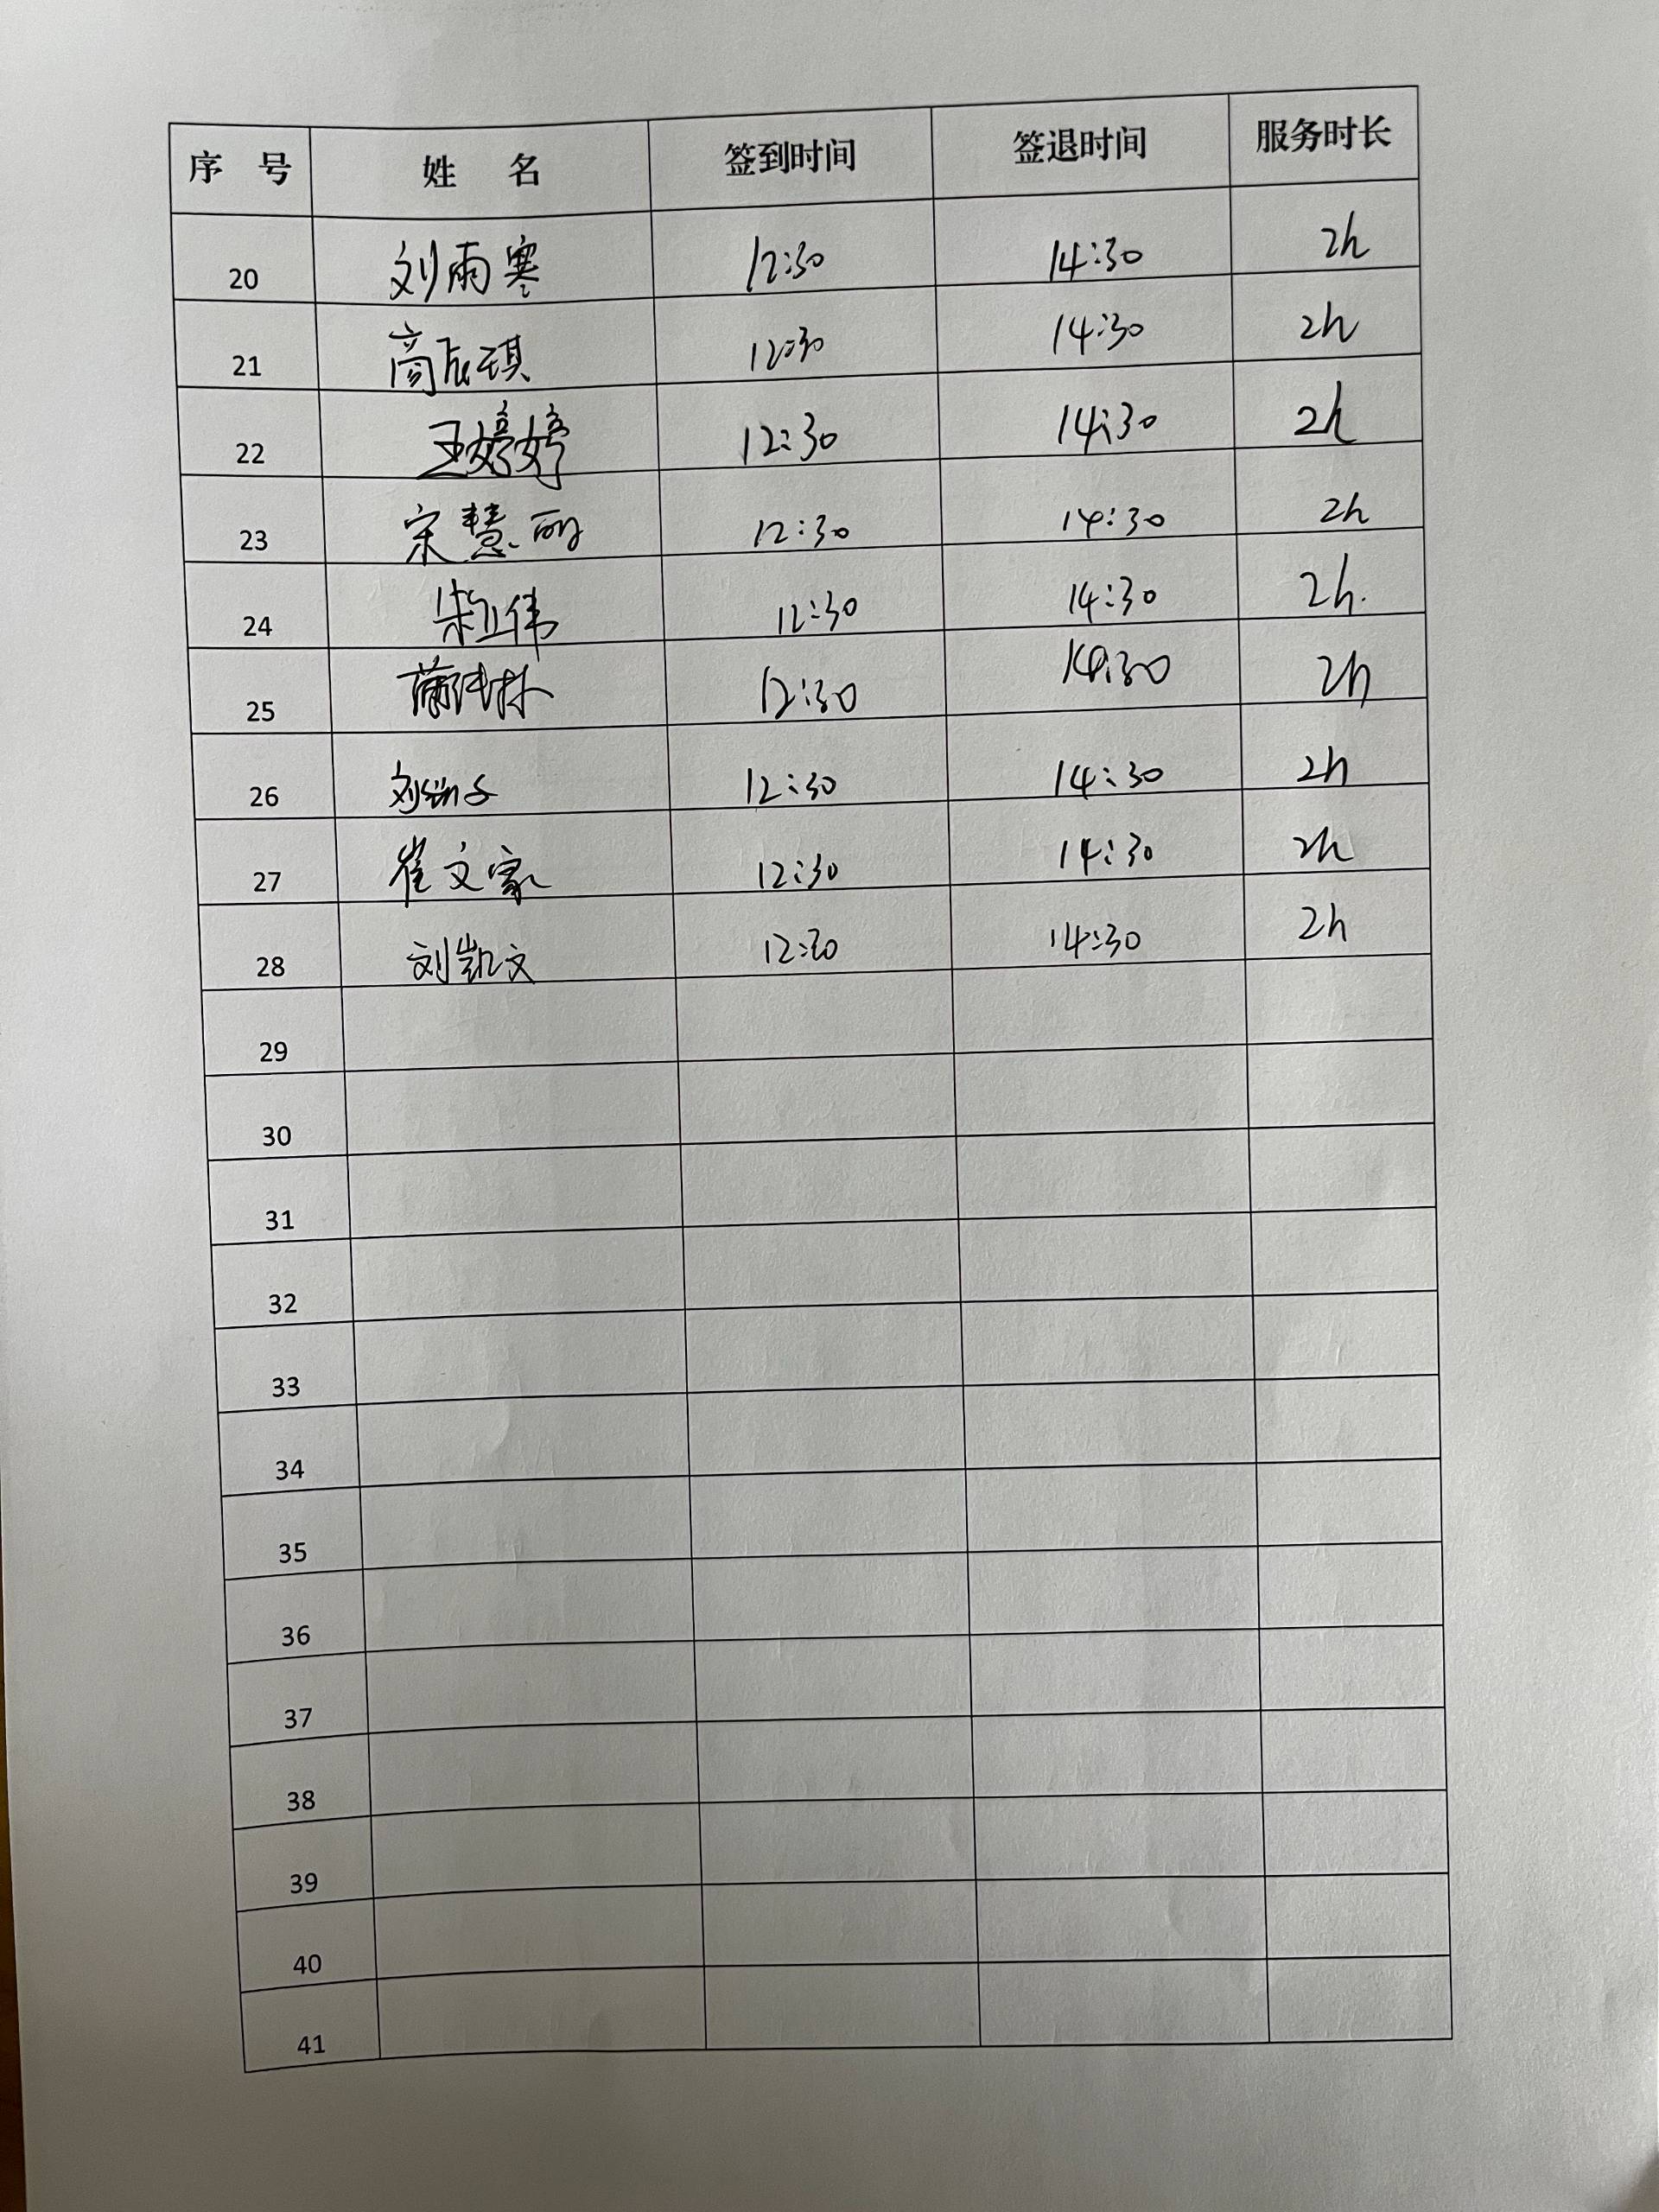 序 号 姓 名 签到时间 签退时间 服务时长
20 刘雨寒 12:30 14:30 2h
21 高辰琪 12:30 14:30 2h
22 王婷婷 12:30 14:30 2h
23 宋慧丽 12:30 14:30 2h
24 朱立伟 12:30 14:30 2h.
25 12:30 14:30 2h
26 刘 12:30 14:30 2h
27 崔文家 12:30 14:30 2h
28 刘凯文 12:30 14:30 2h
29
30
31
32
33
34
35
36
37
38
39
40
41